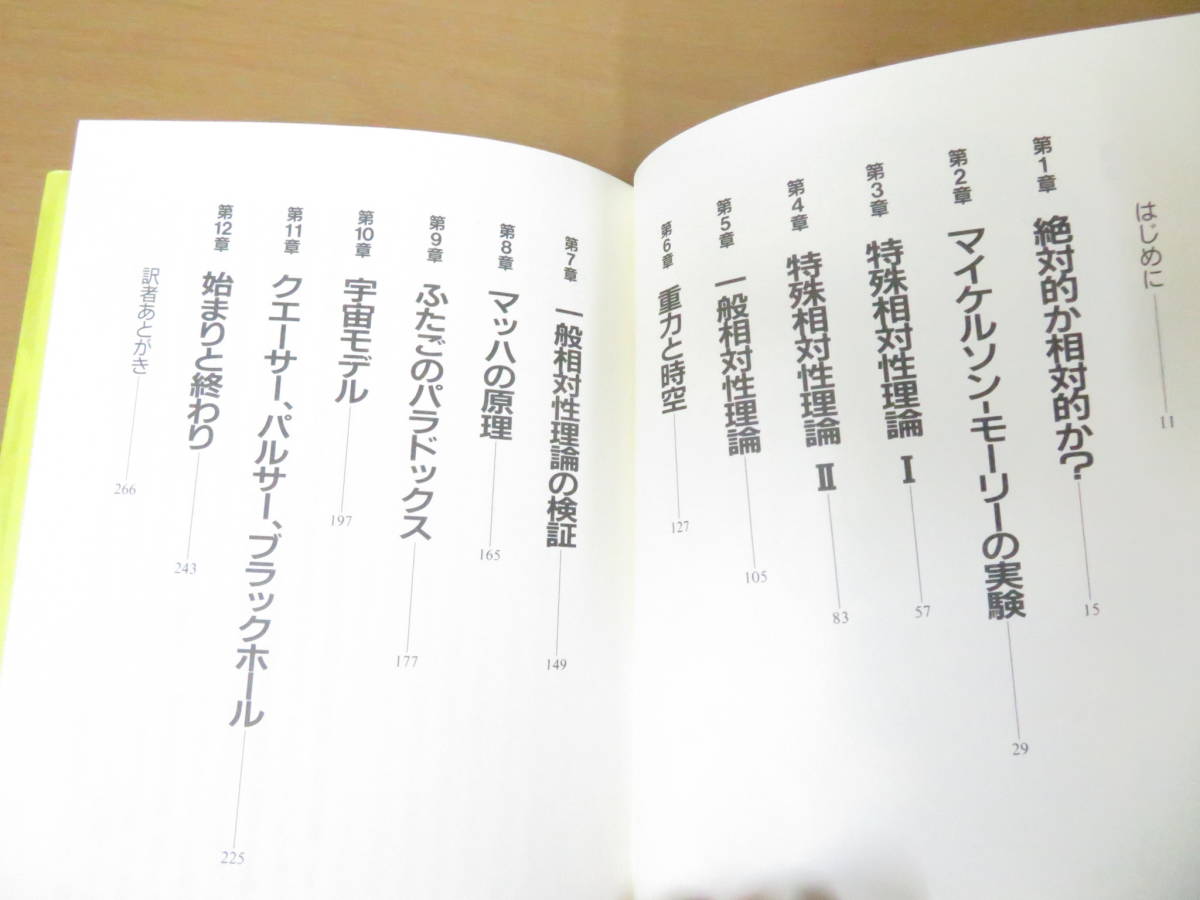 はじめに 11
第1章 絶対的か相対的か? 15
第2章 マイケルソン-モーリーの実験 29
第3章 特殊相対性理論 Ⅰ 57
第4章 特殊相対性理論 Ⅱ 83
第5章 一般相対性理論 105
第6章 重力と時空 127
第7章 一般相対性理論の検証 149
第8章 マッハの原理 165
第9章 ふたごのパラドックス 177
第10章 宇宙モデル 197
第11章 クエーサー、パルサー、ブラックホール 225
第12章 始まりと終わり 243
訳者あとがき 266